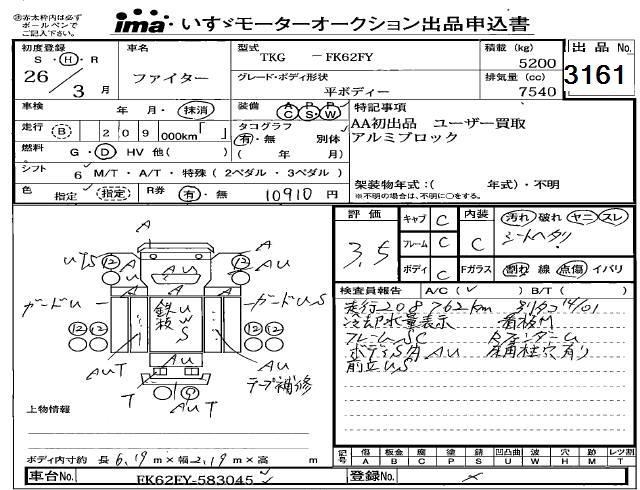 赤太枠内は必ず
ボールペンで
ご記入下さい。
ima・いすゞモーターオークション出品申込書
初度登録
S・H・R
26 / 3 月
車名
ファイター
型式
TKG － FK62FY
グレード・ボディ形状
平ボディー
積載 (kg)
5200
排気量 (cc)
7540
出品 No.
3161
車検 年 月・抹消
走行 B 209 000km「 」
燃料 G・D HV 他( )
シフト 6 M/T・A/T・特殊 (2ペダル・3ペダル)
色 指定 指定
R券 有・無 10910 円
装備 A/C P/S P/W
タコグラフ
有・無 別体
( 年 月)
特記事項
AA初出品 ユーザー買取
アルミブロック
架装物年式:( 年式)・不明
※不明の場合は、不明に○をする。
評価 3.5
キャブ C
フレーム C
ボディ C
内装 C
Fガラス
汚れ 破れ ヤニ スレ
シートヘタリ
割れ 線 点傷 イバリ
検査員報告 A/C(✓) B/T( )
走行208762km
冷却水量表示 看板M
フレームSC RフェンダーU
ボディS角AU 床角柱穴有り
前立US
A
A
UTS ⑫ A ⑫ A
AU
A A A
ガードU
鉄板
U
W
S
ガードUS
⑫ ⑫
AUT
AU
AU
テープ補修
T
AUT
上物情報
ボディ内寸約 長 6.19 m×幅 2.19 m×高 m
記号 傷A 板金B 腐C 塗P 錆S 凹凸曲U 波W 穴H 跡M レツ割T
車台No. FK62FY-583045
登録No.